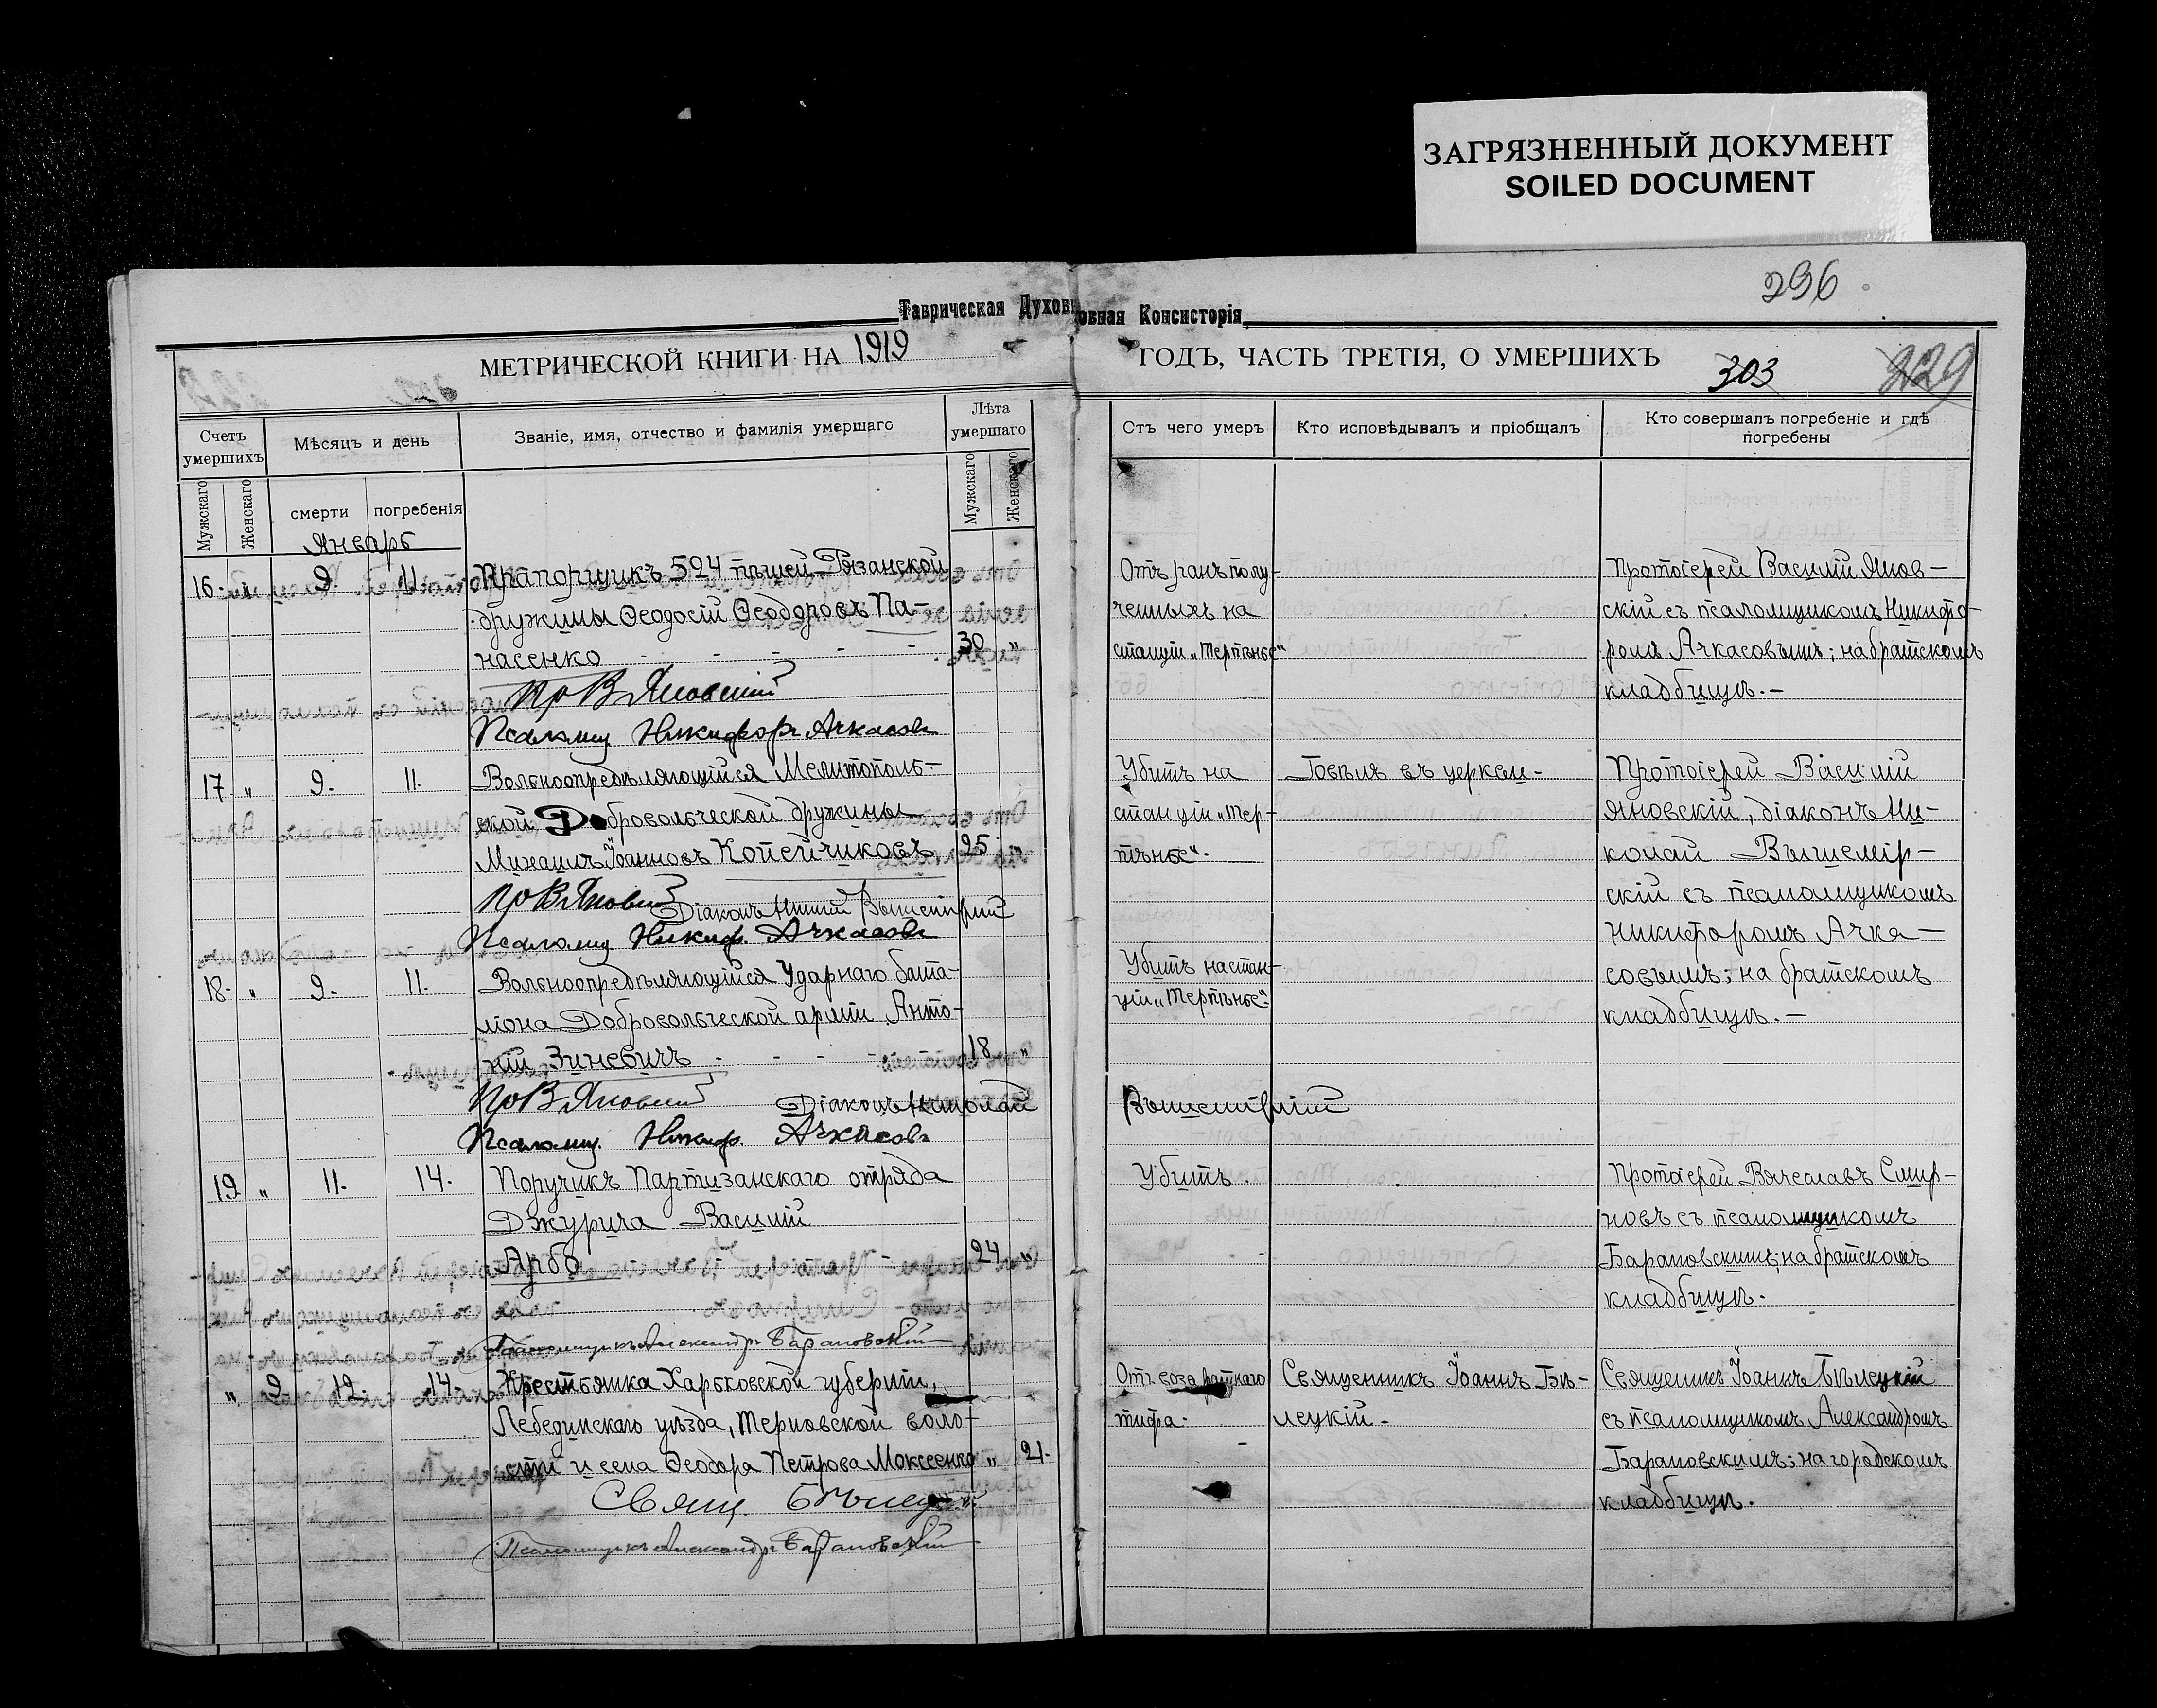 ЗАГРЯЗНЕННЫЙ ДОКУМЕНТ
SOILED DOCUMENT
296
Таврическая Духовная Консисторія
МЕТРИЧЕСКОЙ КНИГИ НА 1919 ГОДЪ, ЧАСТЬ ТРЕТІЯ, О УМЕРШИХЪ
303
229
Счетъ умершихъ
Мѣсяцъ и день
Званіе, имя, отчество и фамилія умершаго
Лѣта умершаго
Стъ чего умеръ
Кто исповѣдывалъ и пріобщалъ
Кто совершалъ погребеніе и гдѣ
погребены
Мужскаго
Женскаго
смерти
погребенія
Мужскаго
Женскаго
Январь
16. „ 9. 11. Прапорщикъ 524 пѣшей Рязанской
дружины Ѳеодосій Ѳеодоровъ Па-
насенко 30 „
Пр В Яновскій
Псаломщ Никифоръ Ачкасовъ
Отъ ранъ полу-
ченныхъ на
станціи „Терпѣнье“
Протоіерей Василій Янов-
скій съ псаломщикомъ Никифо-
ромъ Ачкасовымъ; на братскомъ
кладбищѣ.-
17. „ 9. 11. Вольноопредѣляющійся Мелитополь-
ской Добровольческой дружины
Михаилъ Іоанновъ Копейчиковъ 25 „
Пр В Яновскій
Діаконъ Николай Вышемірскій
Псаломщ Никиф. Ачкасовъ
Убитъ на
станціи „Тер-
пѣнье“.
Говѣлъ въ церкви.
Протоіерей Василій
Яновскій, діаконъ Ни-
колай Вышемір-
скій съ псаломщикомъ
Никифоромъ Ачка-
совымъ; на братскомъ
кладбищѣ.-
18. „ 9. 11. Вольноопредѣляющійся Ударнаго бата-
ліона Добровольческой арміи Анто-
ній Зиневичъ 18 „
Пр В Яновскій Діаконъ Николай Вышемірскій
Псаломщ. Никиф. Ачкасовъ
Убитъ на стан-
ціи „Терпѣнье“.
19 „ 11. 14. Поручикъ Партизанскаго отряда
Джурича Василій
Арбо 24 „
Псаломщикъ Александръ Барановскій
Убитъ.
Протоіерей Вячеславъ Смир-
новъ съ псаломщикомъ
Барановскимъ; на братскомъ
кладбищѣ.
„ 2. 12. 14. Крестьянка Харьковской губерніи,
Лебединскаго уѣзда, Терновской воло-
сти и села Ѳеодора Петрова Моксеенко „ 21.
Свящ. Бѣлецкій
Псаломщикъ Александръ Барановскій
Отъ возвратнаго
тифа.
Священникъ Іоаннъ Бѣ-
лецкій.
Священникъ Іоаннъ Бѣлецкій
съ псаломщикомъ Александромъ
Барановскимъ; на городскомъ
кладбищѣ.